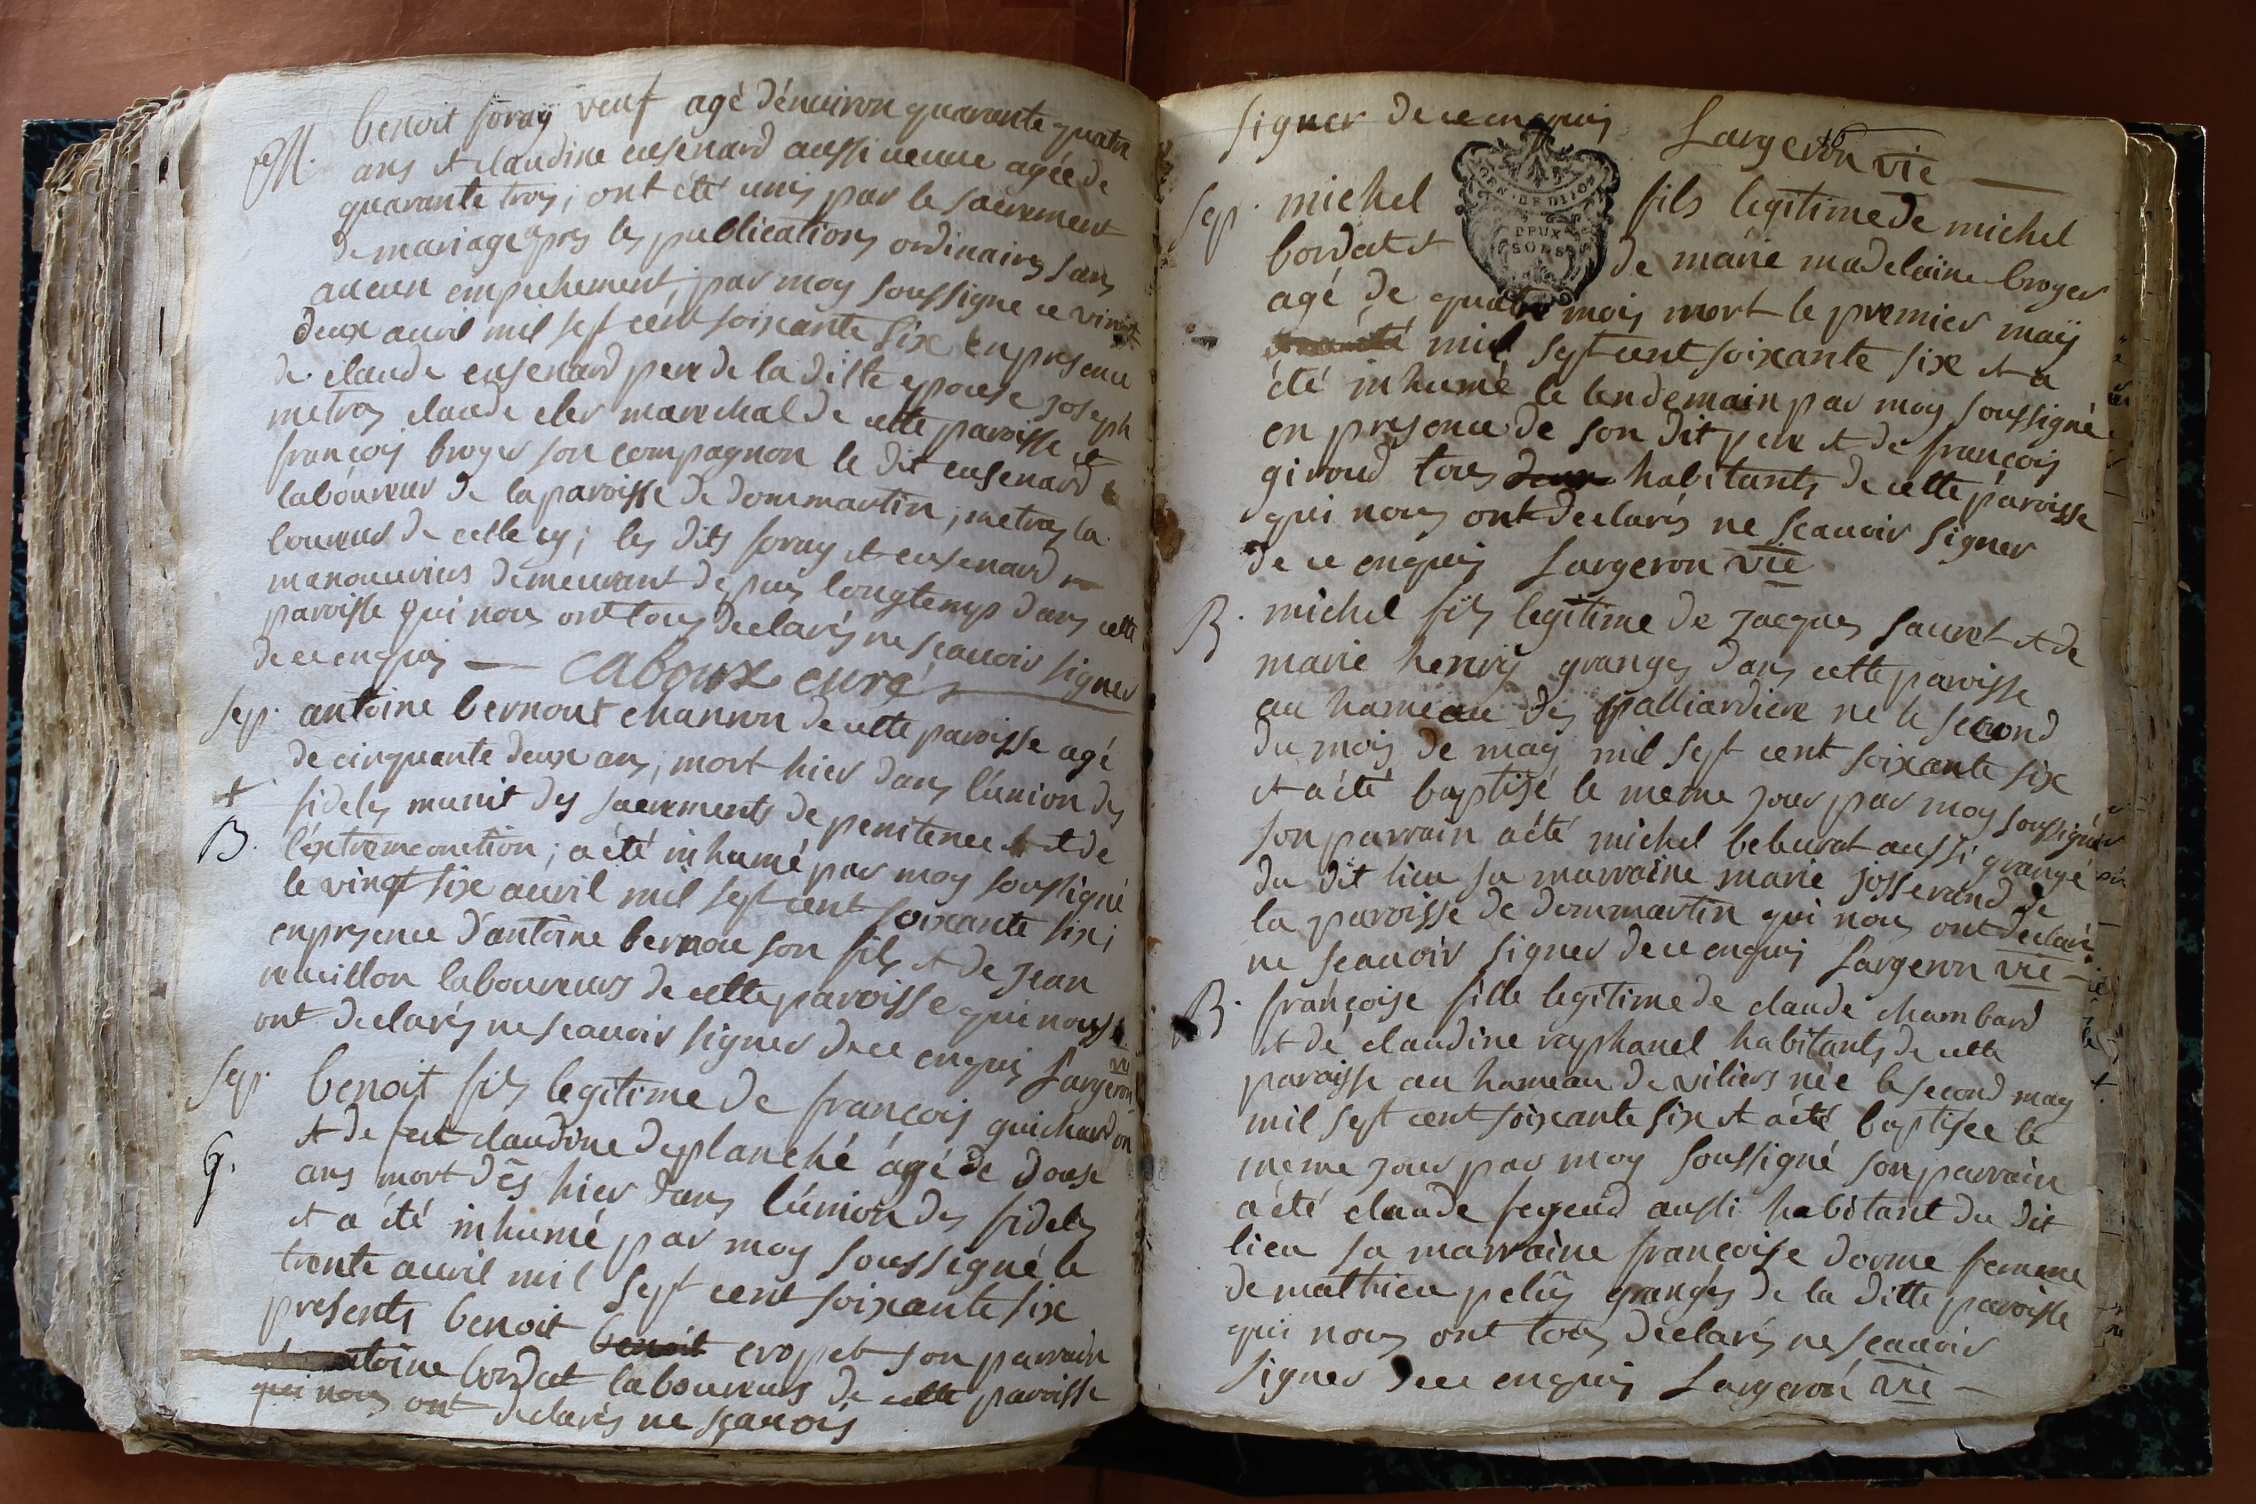 M. benoit foray veuf agé d'énuiron quarante quatre
ans et claudine ensenard aussi ueuue agée de
quarante trois, ont été unis par le sacrement
de mariage apres les publications ordinaires sans
aucun empechement, par moy soussigne ce vingt
deux auril mil sept cent soixante six en presence
de claude ensenard pere de la ditte epouse joseph
metras claude cler marechal de cette paroisse et
françois broyer son compagnon le dit ensenard
laboureur de la paroisse de dommartin; metras la
boureur de celle cy; les dits foray et ensenard
manouuriers demeurant depuis longtemp dans cette
paroisse qui nous ont tous declarés ne scauoir signer
de ce enquis — Caboux curé
sep. antoine bernout charron de cette paroisse agé
de cinquante deux ans, mort hier dans l'union des
+ fideles munit des sacrements de penitence et de
B. l'extremeonction; a été inhumé par moy soussigné
le vingt six auril mil sept cent soixante six;
en presence d'antoine bernou son fils et de jean
reuillon laboureurs de cette paroisse qui nous
ont declarés ne scauoir signer de ce enquis Largeron vie
sep. benoit fils legitime de françois guichardon
et de feüe claudine deplanche âgé de douse
G. ans mort dês hier dans l'union des fideles
et a été inhumé par moy soussigné le
trente auril mil sept cent soixante six
presents benoit benoit cropet son parrain
et antoine bordat laboureurs de cette paroisse
qui nous ont declarés ne sçauoir
signer de ce enquis Largeron vie
sep. michel fils legitime de michel
GEN. DE DIJON
DEUX
SOLS
bordat et de marie madelaine broyer
agé de quatre mois mort le premier maÿ
mil sept cent soixante six et a
été inhumé le lendemain par moy soussigné
en presence de son dit pere et de françois
giroud tous deux habitants de cette paroisse
qui nous ont declarés ne scauoir signer
de ce enquis Largeron vie
B. michel fils legitime de jacques sauret et de
marie henry granges dans cette paroisse
au hameau des palliardiere ne le second
du mois de may mil sept cent soixante six
et a été baptisé le meme jour par moy soussigné
son parrain a été michel beburat aussi grangé
du dit lieu sa marraine marie josserand de
la paroisse de dommartin qui nous ont declarés
ne scauoir signer de ce enquis Largeron vie
B. françoise fille legitime de claude chambard
et de claudine raphanel habitants de cette
paroisse au hameau de viliers née le second may
mil sept cent soixante six et a été baptisée le
meme jour par moy soussigné son parrain
a été claude feyeud aussi habitant du dit
lieu sa marraine françoise dorme femme
de mathieu pelüs grangés de la ditte paroisse
qui nous ont tous declarés ne scauoir
signer de ce enquis Largeron vie